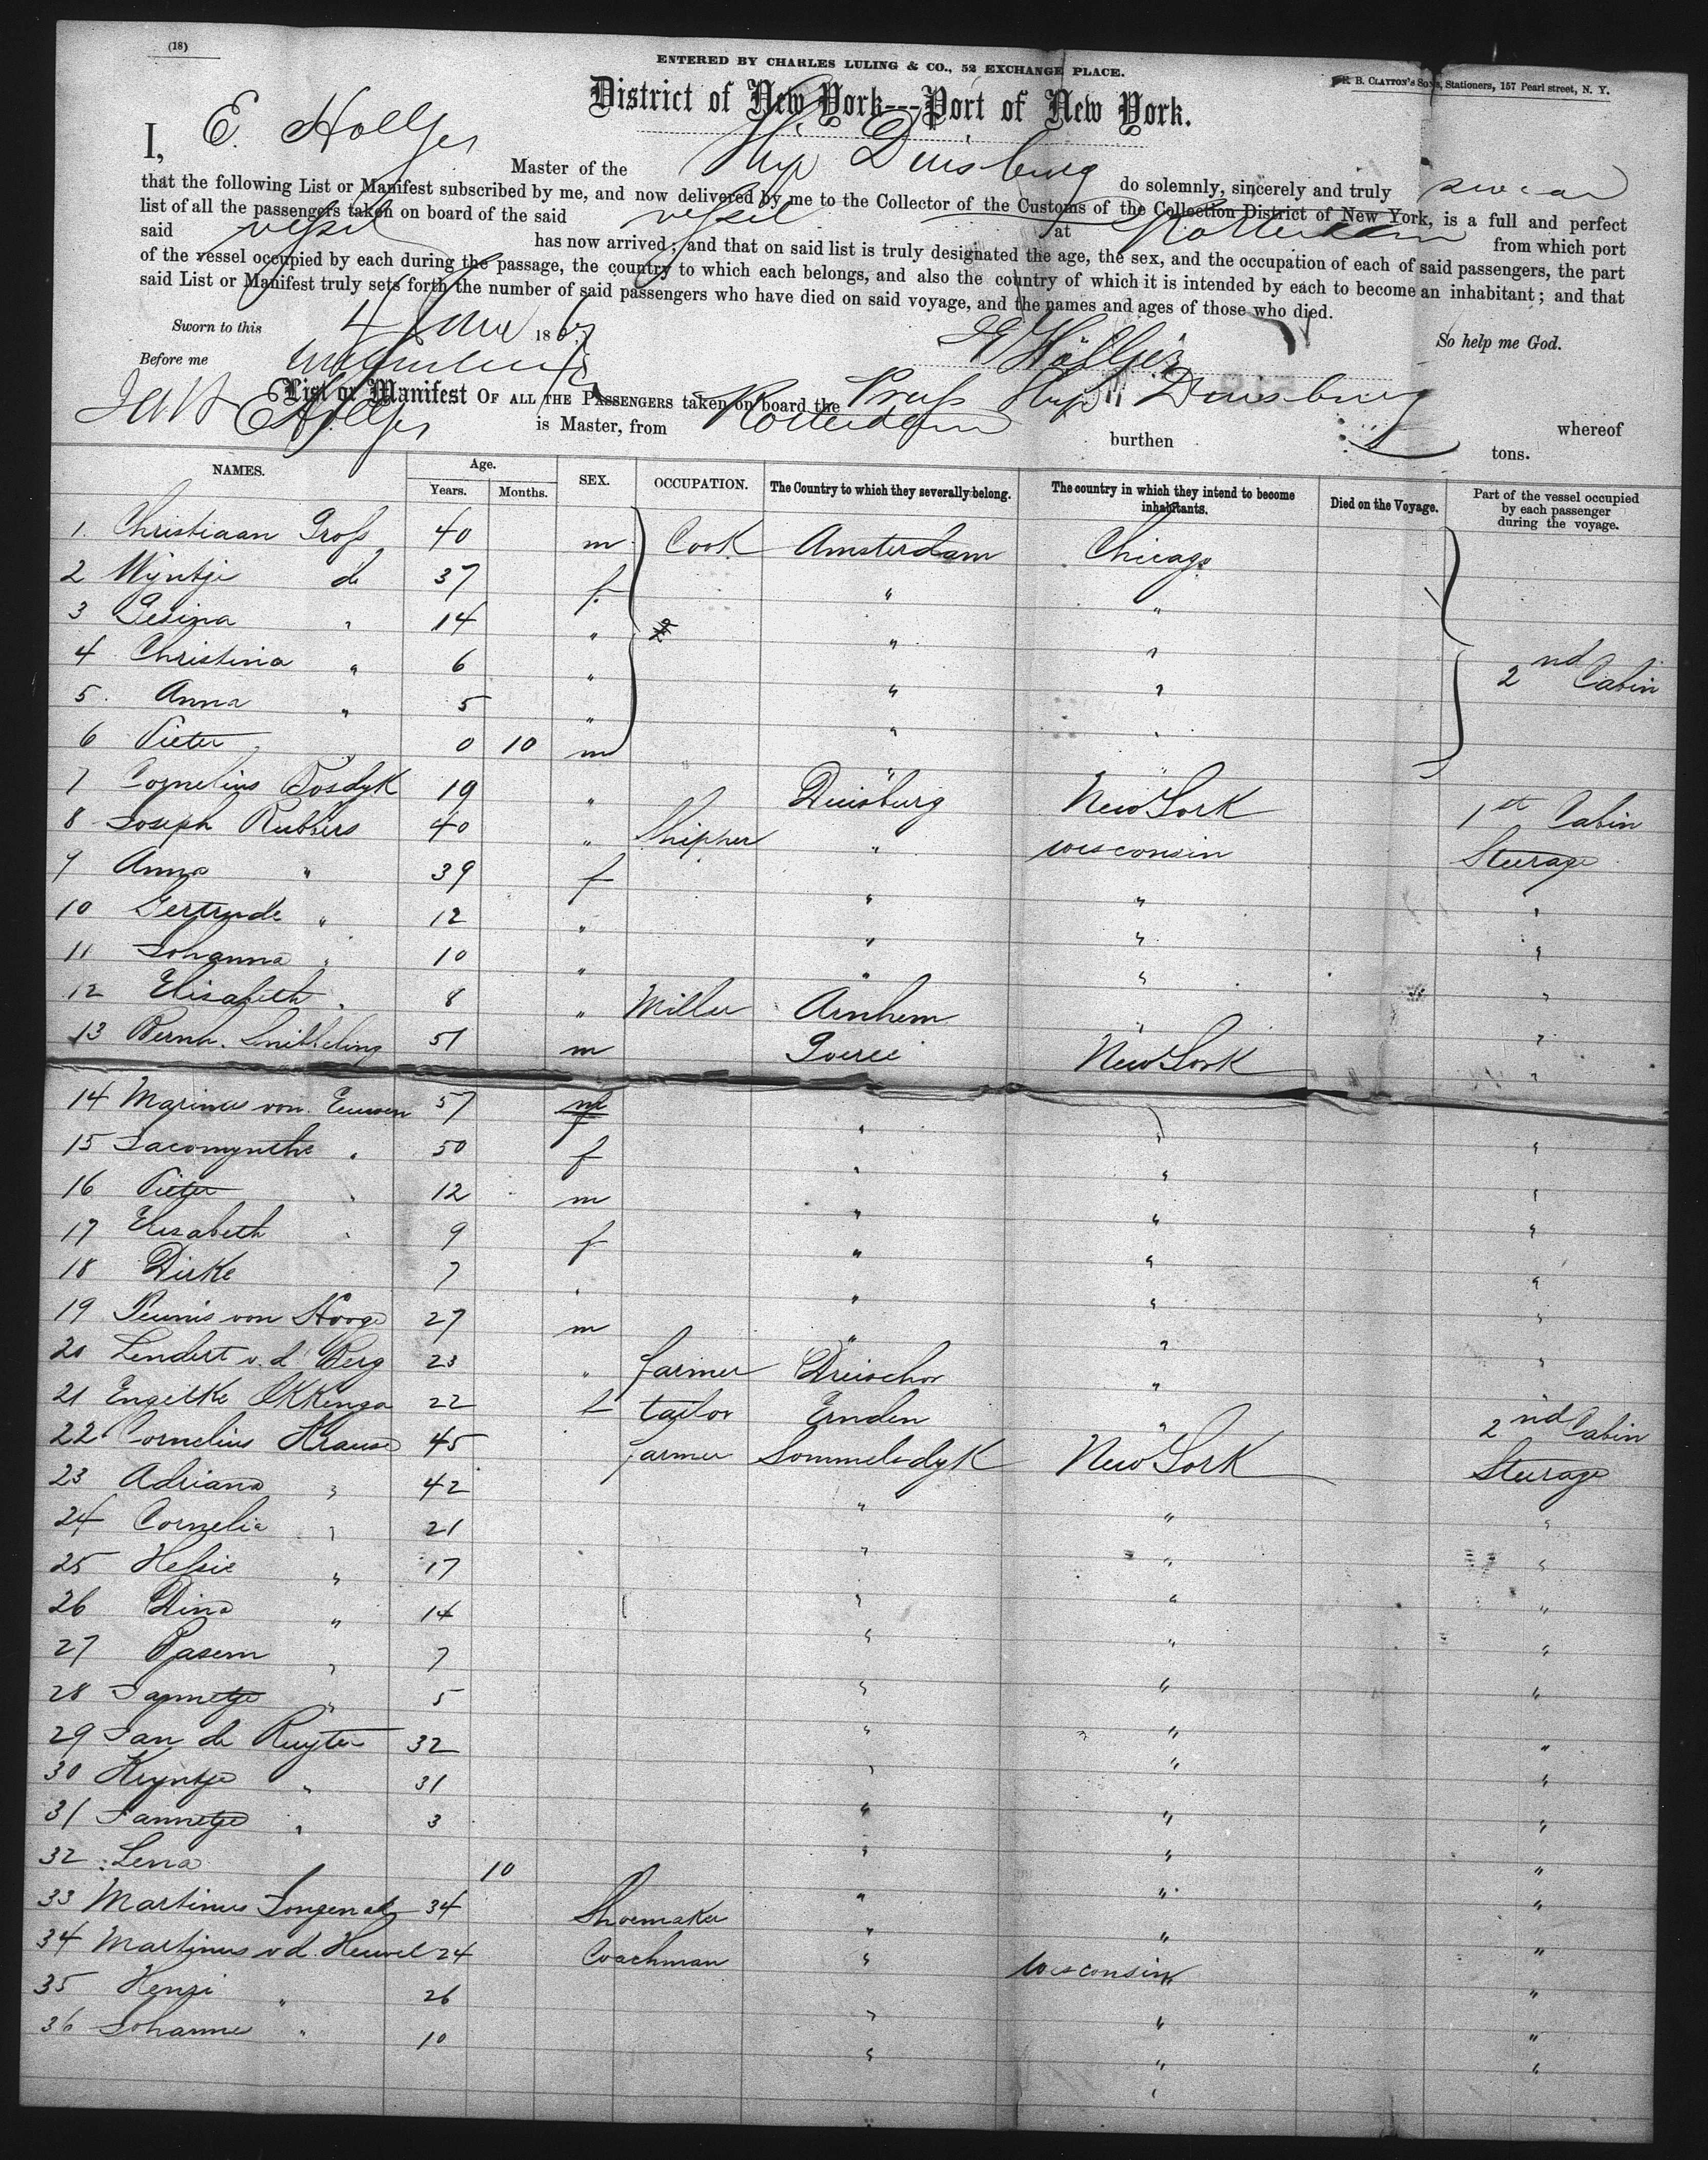 (18)
ENTERED BY CHARLES LULING & CO., 52 EXCHANGE PLACE.
B. CLAYTON'S SONS, Stationers, 157 Pearl street, N. Y.
District of New York---Port of New York.
I, E. Holljes Master of the Ship Duisburg do solemnly, sincerely and truly swear
that the following List or Manifest subscribed by me, and now delivered by me to the Collector of the Customs of the Collection District of New York, is a full and perfect
list of all the passengers taken on board of the said vessel at Rotterdam from which port
said vessel has now arrived; and that on said list is truly designated the age, the sex, and the occupation of each of said passengers, the part
of the vessel occupied by each during the passage, the country to which each belongs, and also the country of which it is intended by each to become an inhabitant; and that
said List or Manifest truly sets forth the number of said passengers who have died on said voyage, and the names and ages of those who died.
Sworn to this 4 June 1867 So help me God.
Before me E Höljes
List or Manifest OF ALL THE PASSENGERS taken on board the Pruss Ship Duisburg whereof
E Holljes is Master, from Rotterdam burthen tons.
NAMES. Age. Years. Months. SEX. OCCUPATION. The Country to which they severally belong. The country in which they intend to become inhabitants. Died on the Voyage. Part of the vessel occupied by each passenger during the voyage.
1. Christiaan Gross 40 m Cook Amsterdam Chicago
2 Wyntje do 37 f " "
3 Gesina " 14 " " "
4 Christina " 6 " " " 2nd Cabin
5. Anna " 5 " " "
6 Pieter " 0 10 m " "
7 Cornelius Bosdyk 19 " Duisburg New York 1st Cabin
8 Joseph Rubbers 40 " Shipper " Wisconsin Steerage
9 Anna " 39 f " " "
10 Gertrude " 12 " " " "
11 Johanna " 10 " " " "
12 Elisabeth " 8 " Miller Arnhem " "
13 Bernh. 51 m Goeree New York "
14 Marinus von 57 m " " "
15 " 50 f " " "
16 Pieter " 12 m " " "
17 Elisabeth " 9 f " " "
18 Dirke 7 " " " "
19 Teunis von Hooge 27 m " " "
20 Lendert v. d. Berg 23 " farmer Dreischor "
21 Engelke Okkenga 22 f tailor Emden " 2nd Cabin
22 Cornelius Krause 45 farmer Sommelsdyk New York Steerage
23 Adriana " 42 " " "
24 Cornelia " 21 " " "
25 Hessie " 17 " " "
26 Dina " 14 " " "
27 " 7 " " "
28 Jannetje " 5 " " "
29 Jan de Ruyter 32 " " "
30 Kryntje " 31 " " "
31 Jannetje " 3 " " "
32 Lena 10 " " "
33 Martinus 34 Shoemaker " " "
34 Martinus v d. Heuvel 24 Coachman " Wisconsin "
35 Henri " 26 " " "
36 Johannes " 10 " " "